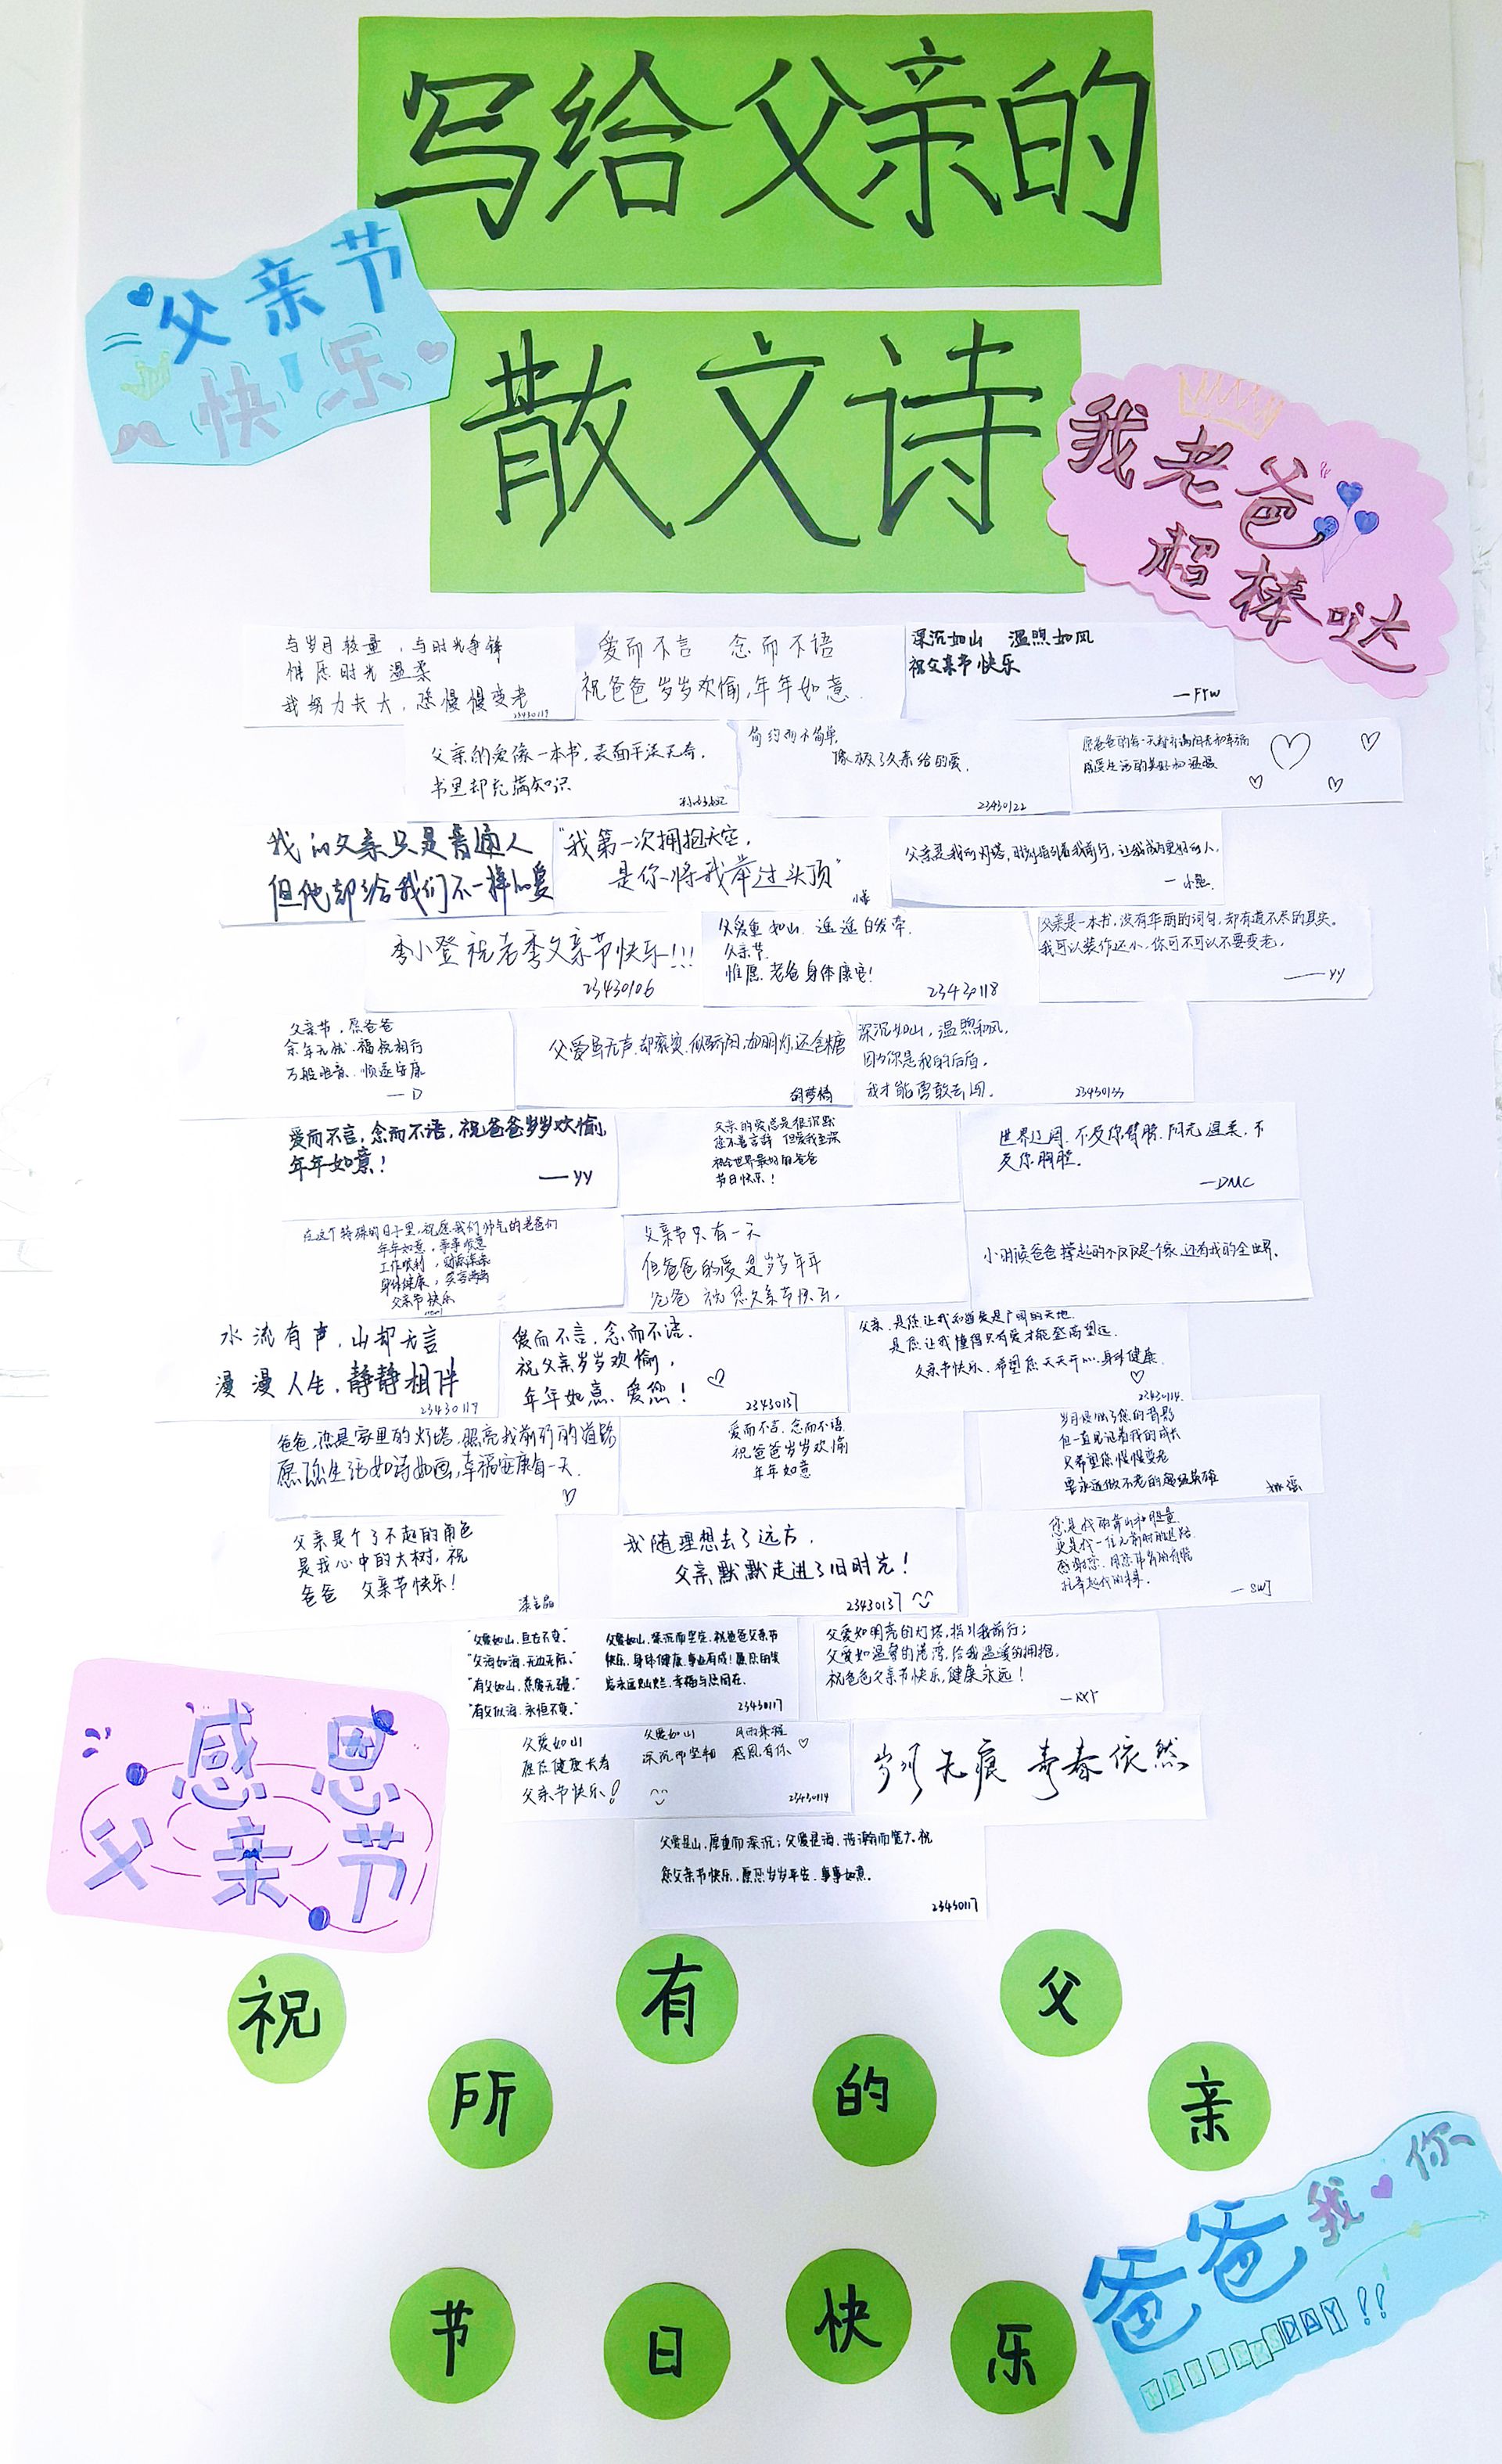 写给父亲的
父亲节
快乐
散文诗
我老爸
超棒哒
与岁月较量,与时光争锋
惟愿时光温柔
我努力长大,您慢慢变老
23430119
爱而不言 念而不语
祝爸爸岁岁欢愉,年年如意.
深沉如山 温煦如风
祝父亲节快乐
—FYW
父亲的爱像一本书,表面平淡无奇,
书里却充满知识
简约而不简单,
像极了父亲给的爱.
23430122
愿爸爸的每一天都充满阳光和幸福
感受生活的美好和温暖
我的父亲只是普通人
但他却给我们不一样的爱
"我第一次拥抱天空,
是你将我举过头顶"
父亲是我的灯塔,时刻指引着我前行,让我成为更好的人.
李小登祝老李父亲节快乐!!!
23430106
父爱重如山 遥遥白发牵.
父亲节.
惟愿.老爸身体康宅!
23430118
父亲是一本书,没有华丽的词句,却有道不尽的真实。
我可以装作还小,你可不可以不要变老.
——YY
父亲节,愿爸爸
余年无忧·福祝相行
万般如意·顺遂安康
—D
父爱虽无声,却滚烫,似骄阳,如明灯,还含糖
胡梦倩
深沉如山,温煦和风.
因为你是我的后盾.
我才能勇敢去闯.
23430133
爱而不言,念而不语,祝爸爸岁岁欢愉,
年年如意!
—YY
父亲的爱总是很沉默
您不善言辞 但爱我至深
祝全世界最好的爸爸
节日快乐!
世界辽阔,不及你臂膀.阳光温柔,不
及你胸膛。
—DMC
在这个特殊的日子里,祝愿我们帅气的老爸们
年年如意,事事顺意
工作顺利,财源滚滚
身体健康,笑言满满
父亲节快乐
父亲节只有一天
但爸爸的爱是岁岁年年
爸爸 祝您父亲节快乐.
小时候爸爸撑起的不仅仅是一个家,还有我的全世界.
水流有声,山却无言
漫漫人生,静静相伴
23430119
爱而不言.念而不语.
祝父亲岁岁欢愉,
年年如意.爱您!
23430137
父亲,是您让我知道爱是广阔的天地.
是您让我懂得只有爱才能登高望远.
父亲节快乐.希望您天天开心.身体健康.
23430114.
爸爸,您是家里的灯塔,照亮我前行的道路
愿您生活如诗如画,幸福安康每一天.
爱而不言.念而不语.
祝爸爸岁岁欢愉
年年如意
岁月侵蚀了您的背影
但一直见证着我的成长
只希望您慢慢变老
要永远做不老的超级英雄
父亲是个了不起的角色
是我心中的大树,祝
爸爸 父亲节快乐!
我随理想去了远方,
父亲默默走进了旧时光!
23430137
您是我的靠山和胆量
更是我一往无前时的退路
—SWJ
"父爱如山,亘古不变."
"父海如海,无边无际."
"有父如山,慈爱无疆."
"有父似海,永恒不变."
父爱如山,深沉而坚定,祝爸爸父亲节
快乐,身体健康,事业有成!愿您的笑
容永远灿烂,幸福与您同在.
23430117
父爱如明亮的灯塔,指引我前行;
父爱如温馨的港湾,给我温暖的拥抱,
祝爸爸父亲节快乐,健康永远!
父爱如山
愿您健康长寿
父亲节快乐!
父爱如山
深沉而坚韧
风雨兼程
感恩有你
23430114
岁月无痕 青春依然
父爱是山,厚重而深沉;父爱是海,浩瀚而宽大.祝
您父亲节快乐,愿您岁岁平安,事事如意.
23430117
感恩
父亲节
祝所有的父亲
节日快乐
爸爸我你